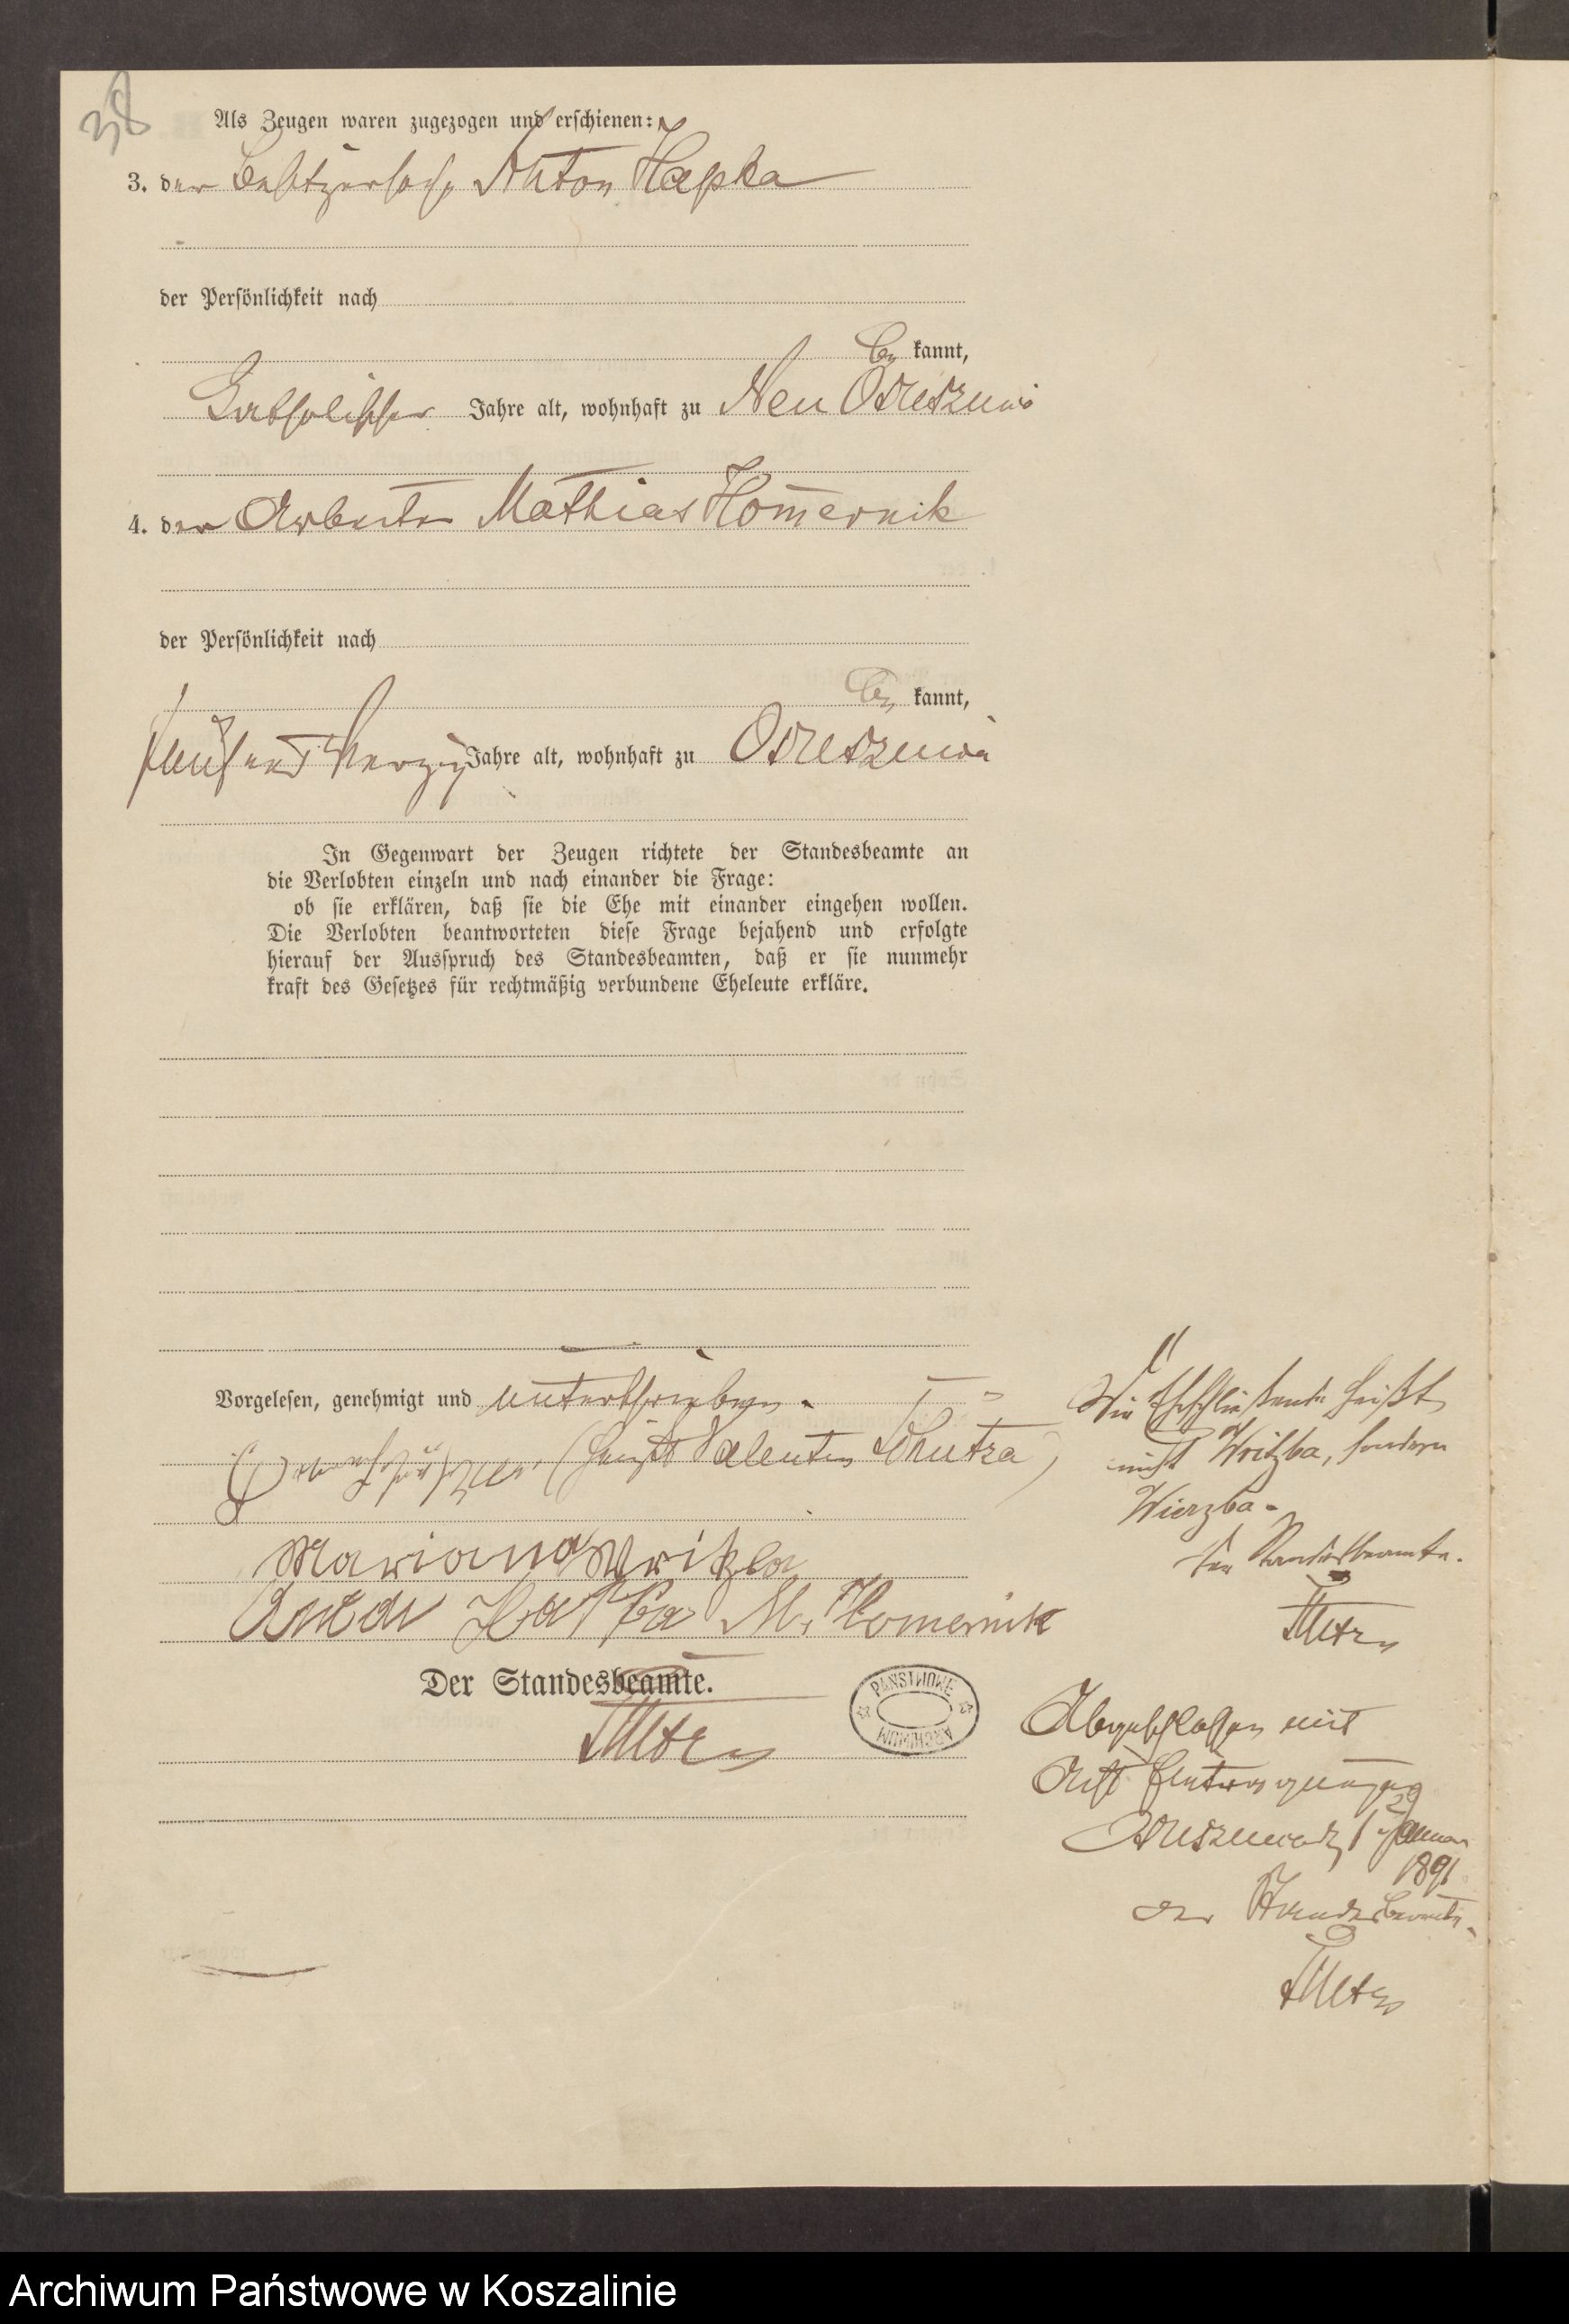 38
Als Zeugen waren zugezogen und erschienen:
3. der Besitzersohn Anton Hapka
der Persönlichkeit nach
be kannt,
Jahre alt, wohnhaft zu Neu
4. der Arbeiter Mathias Homernik
der Persönlichkeit nach
be kannt,
fünf und Jahre alt, wohnhaft zu
In Gegenwart der Zeugen richtete der Standesbeamte an
die Verlobten einzeln und nach einander die Frage:
ob sie erklären, daß sie die Ehe mit einander eingehen wollen.
Die Verlobten beantworteten diese Frage bejahend und erfolgte
hierauf der Ausspruch des Standesbeamten, daß er sie nunmehr
kraft des Gesetzes für rechtmäßig verbundene Eheleute erkläre.
Vorgelesen, genehmigt und unterschrieben.
(heißt Valentin
Mariana Writzba
Anton Hapka M. Homernik
Der Standesbeamte.
PAŃSTWOWE ARCHIWUM
Die Eheschließende heißt
nicht Writzba, sondern
Wierzba.
Der Standesbeamte.
Abgeschlossen mit
Acht Eintragungen
Januar
1891
Der Standesbeamte.
Archiwum Państwowe w Koszalinie